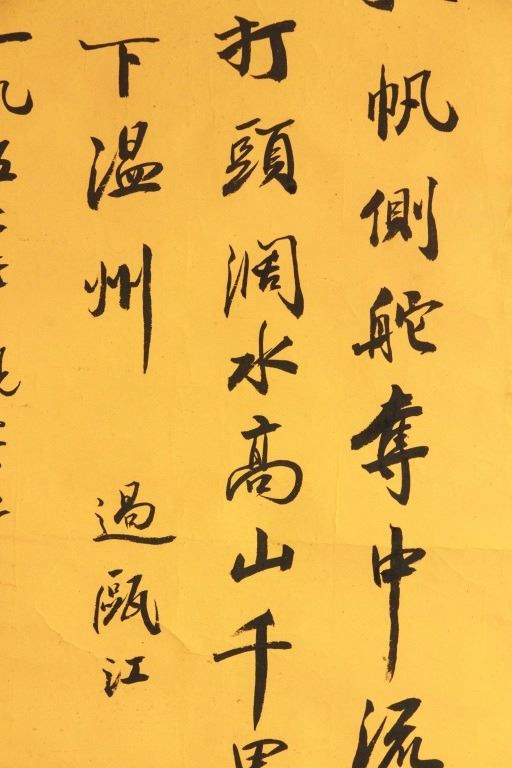 帆側舵奪中流
打頭濶水高山千里
下温州
過甌江
一九五